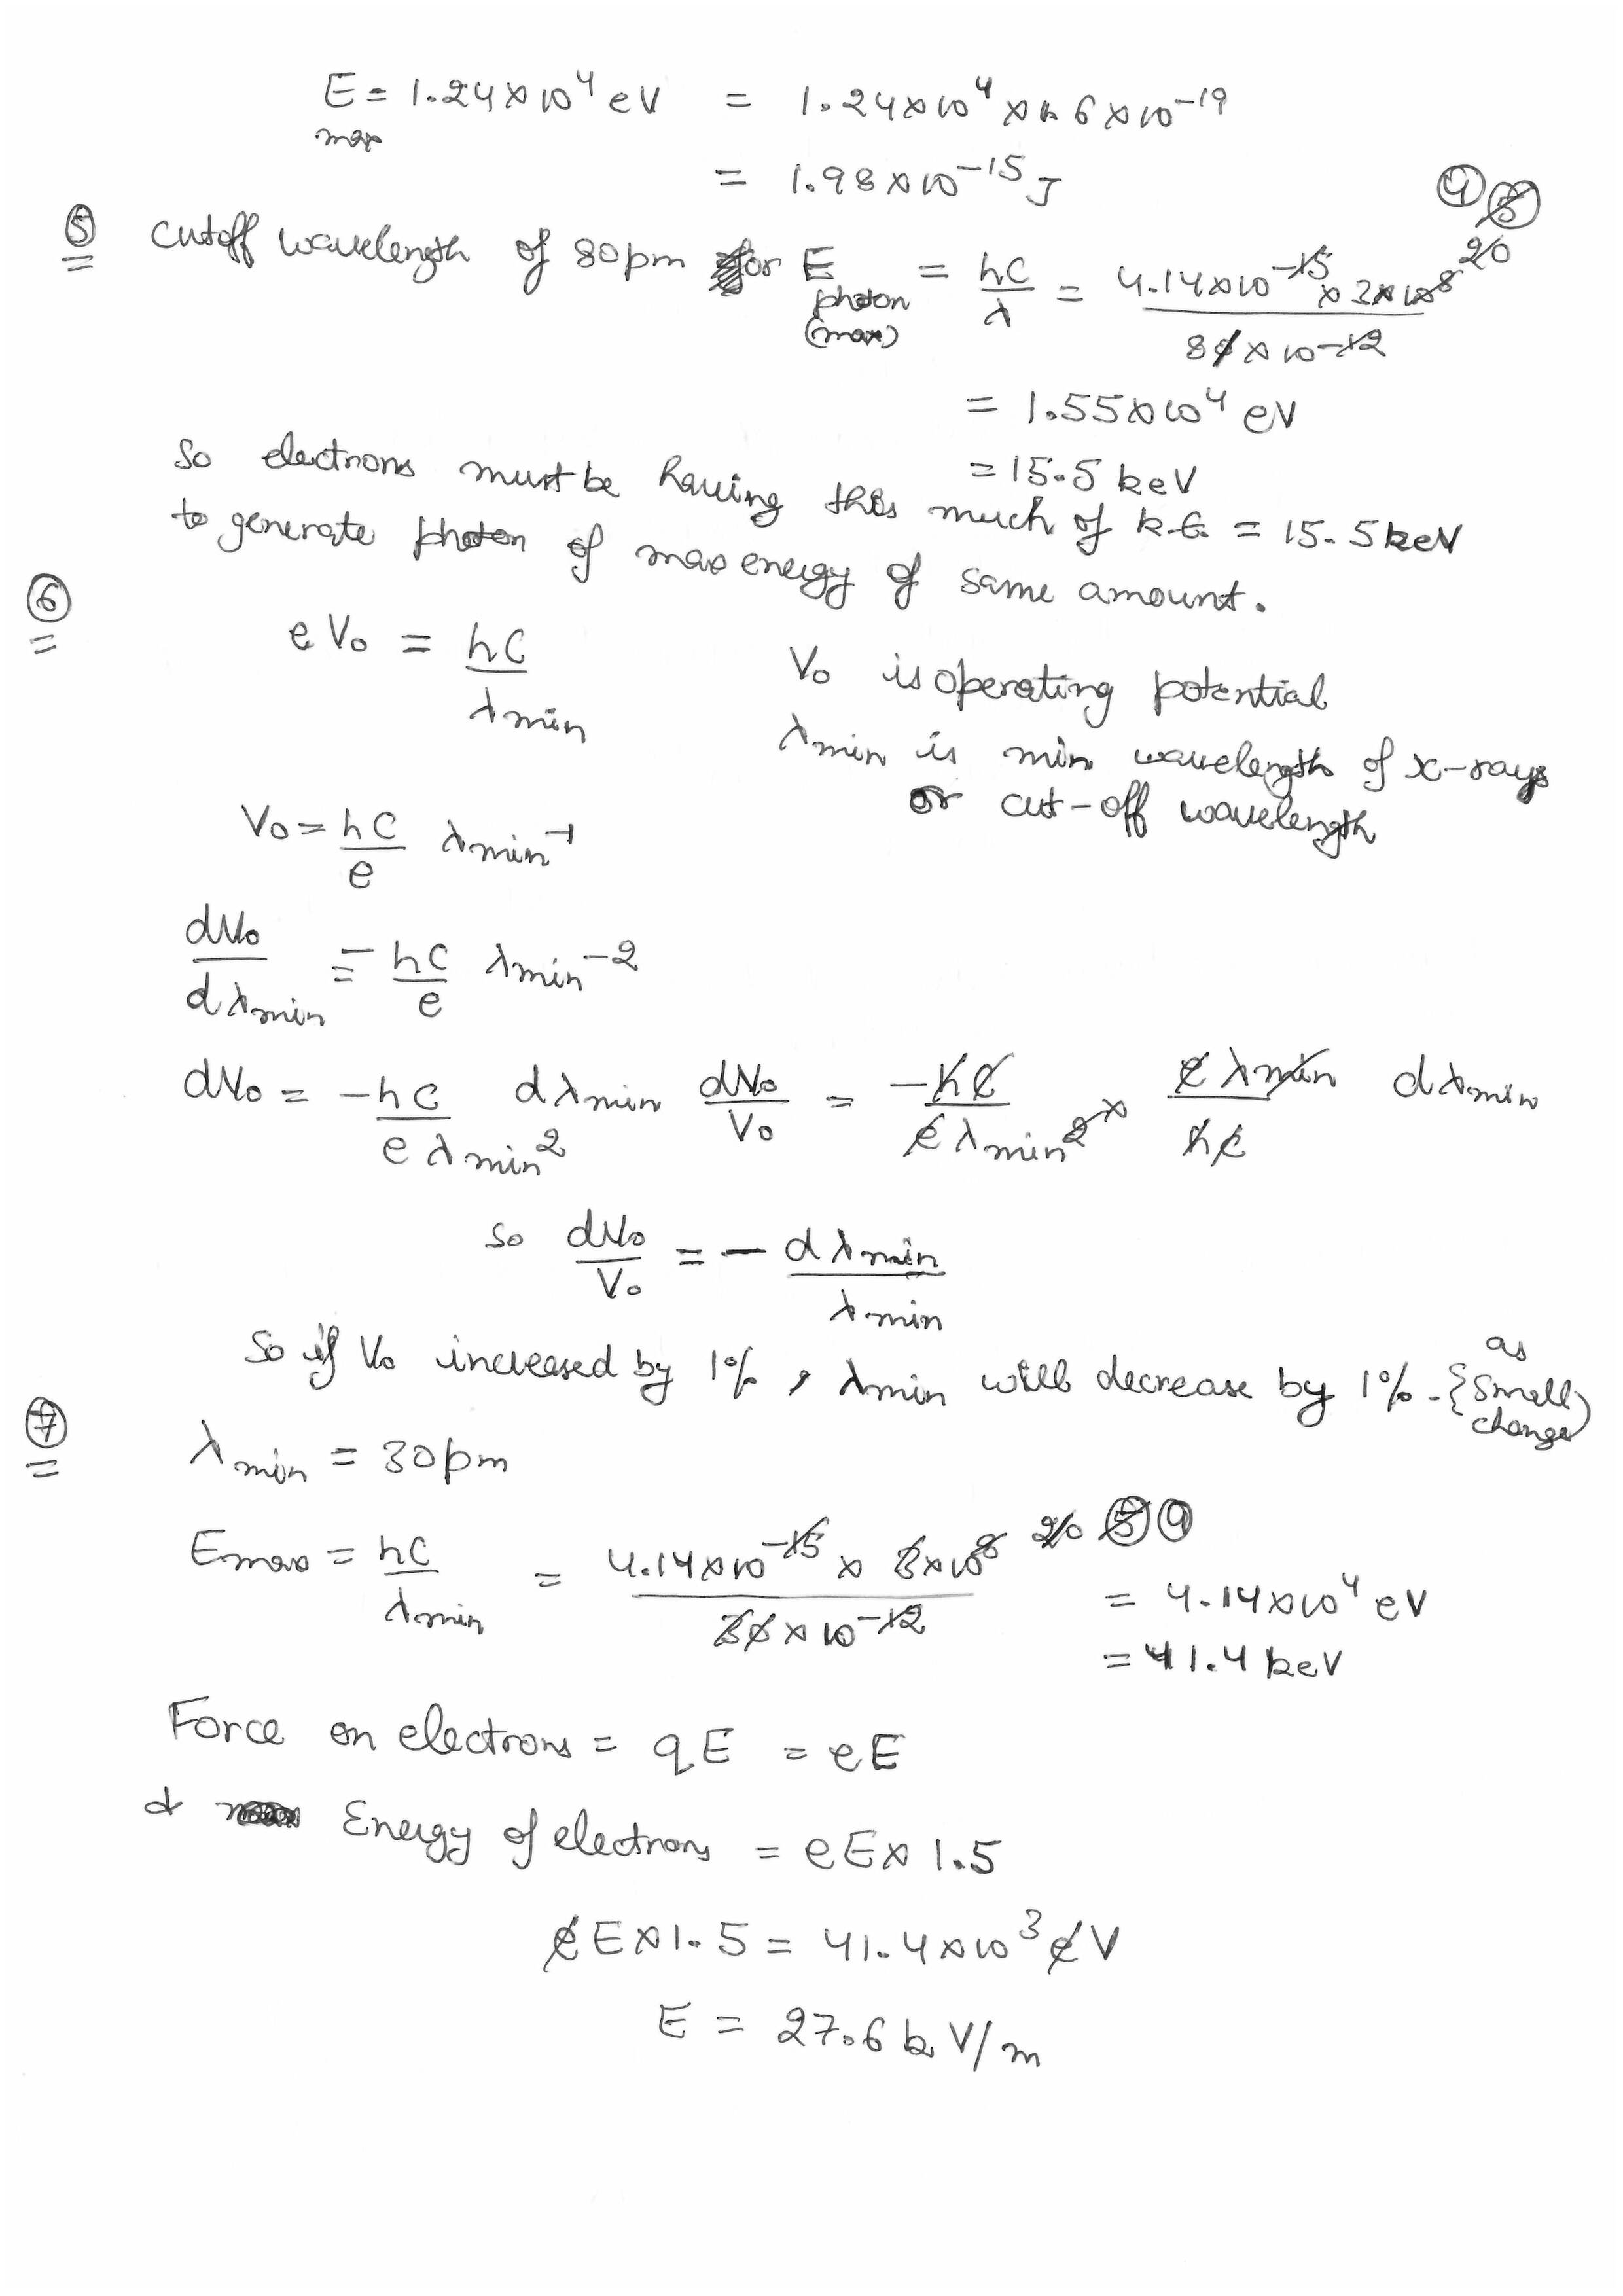 E max = 1.24 × 10⁴ eV = 1.24×10⁴ × 1.6 × 10⁻¹⁹
= 1.98 × 10⁻¹⁵ J
⑤ cutoff wavelength of 80pm for E photon (max) = hC/λ = 4.14×10⁻¹⁵ × 3×10⁸ / 80 × 10⁻¹² 20 ④ ⑤
= 1.55×10⁴ eV
= 15.5 keV
So electrons must be having this much of k.E. = 15.5keV
to generate photon of max energy of same amount.
⑥ eV₀ = hC/λmin
V₀ is operating potential
λmin is min wavelength of x-rays
or cut-off wavelength
V₀ = hC/e λmin⁻¹
dV₀/dλmin = - hC/e λmin⁻²
dV₀ = -hC/eλmin² dλmin dV₀/V₀ = -hC/eλmin² × eλmin/hC dλmin
So dV₀/V₀ = - dλmin/λmin
So if V₀ increased by 1%, λmin will decrease by 1%. {as small change}
⑦ λmin = 30pm
Emax = hC/λmin = 4.14×10⁻¹⁵ × 3×10⁸ / 30 × 10⁻¹² 20 ⑤ ⑨ = 4.14×10⁴ eV
= 41.4 keV
Force on electrons = qE = eE
& Energy of electrons = eE× 1.5
eE×1.5 = 41.4×10³ eV
E = 27.6 kV/m